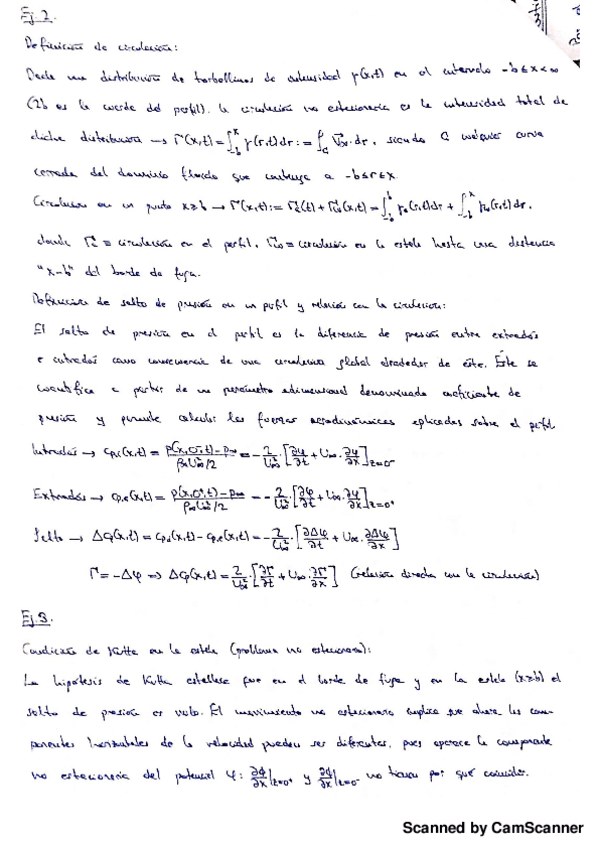 Ej 2.
Definición de circulación:
Dada una distribución de torbellinos de intensidad γ(x,t) en el intervalo -b≤x<∞
(2b es la cuerda del perfil), la circulación no estacionaria es la intensidad total de
dicha distribución → Γ(x,t)=∫_{-b}^{x} γ(r,t)dr := ∮_C V̄·dr, siendo C cualquier curva
cerrada del dominio fluido que contenga a -b≤r≤x.
Circulación en un punto x≥b → Γ(x,t):=Γ(t)+Γ(x,t)=∫_{-b}^{b} γ(r,t)dr + ∫_{b}^{x} γ(r,t)dr,
donde Γ ≡ circulación en el perfil, Γ ≡ circulación en la estela hasta una distancia
"x-b" del borde de fuga.
Definición de salto de presión en un perfil y relación con la circulación:
El salto de presión en el perfil es la diferencia de presión entre extradós
e intradós como consecuencia de una circulación global alrededor de éste. Éste se
cuantifica a partir de un parámetro adimensional denominado coeficiente de
presión y permite calcular las fuerzas aerodinámicas aplicadas sobre el perfil
Intradós → cpi(x,t) = (p(x,0⁻,t)-p∞)/(ρ∞U∞²/2) = -2/U∞² · [∂φ/∂t + U∞·∂φ/∂x]z=0⁻
Extradós → cpe(x,t) = (p(x,0⁺,t)-p∞)/(ρ∞U∞²/2) = -2/U∞² · [∂φ/∂t + U∞·∂φ/∂x]z=0⁺
Salto → Δcp(x,t) = cpi(x,t) - cpe(x,t) = -2/U∞² · [∂Δφ/∂t + U∞·∂Δφ/∂x]
Γ=-Δφ ⇒ Δcp(x,t) = 2/U∞² · [∂Γ/∂t + U∞·∂Γ/∂x] (relación directa con la circulación)
Ej 3.
Condición de Kutta en la estela (problema no estacionario):
La hipótesis de Kutta establece que en el borde de fuga y en la estela (x≥b) el
salto de presión es nulo. El movimiento no estacionario implica que ahora las com-
ponentes horizontales de la velocidad puedan ser diferentes, pues aparece la componente
no estacionaria del potencial φ: ∂φ/∂x|z=0⁺ y ∂φ/∂x|z=0⁻ no tienen por qué coincidir.
Scanned by CamScanner